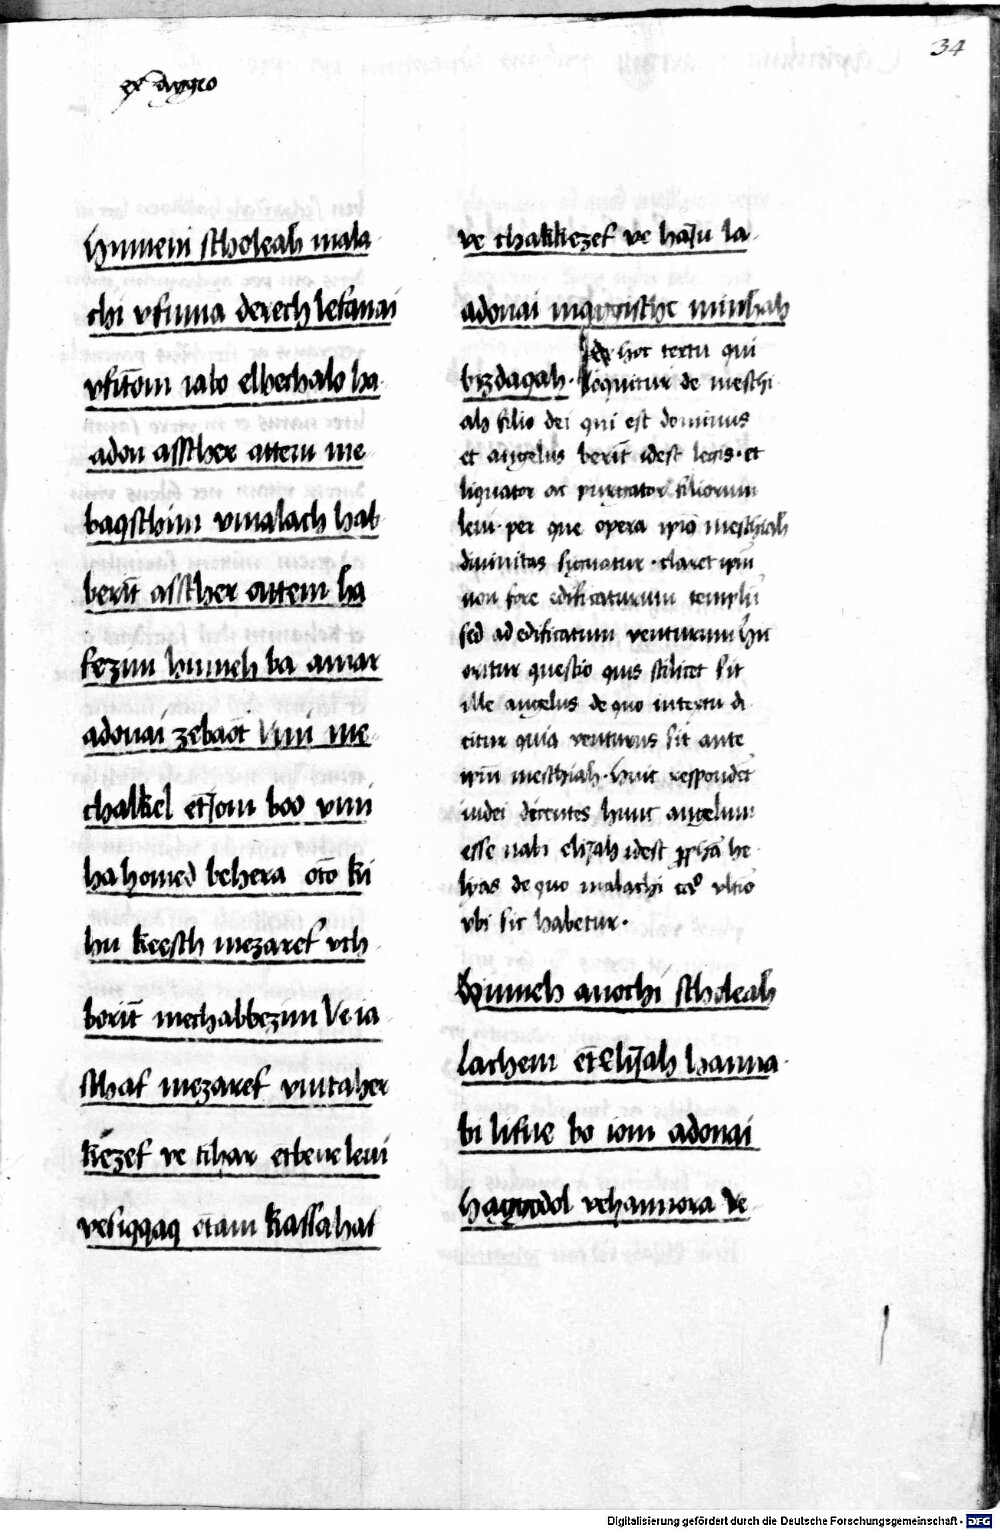 34
ex aggeo
Hinneni scholeah mala
chi vfinna derech lefanai
vfitōm iabo elhechalo ha
adon asscher attem me
baqschim vmalach hab
berīt asscher attem ha
fezim hinneh ba amar
adonai zebaōt Vmi me
chalkel et iom boo vmi
ha homed behera otō ki
hu keesch mezaref vch
borīt mechabbezim Ve ia
schaf mezaref vmtaher
kezef ve tihar etbene leui
vesiqqaq ōtam kassahaf
ve chakkezef ve haiu la
adonai maggische minhah
bizdaqah. Ex hoc textu qui
loquitur de meschi
ah filio dei qui est dominus
et angelus berīt idest legis. et
liquator ac purgator filiorum
leui. per que opera ipiō meschiah
diuinitas signatur. claret ipm̄
non fore edificaturum templū
sed ad edificatum venturum Hic
oritur questio quis scilicet sit
ille angelus de quo in textu di
citur quia venturus sit ante
ipm̄ meschiah. huic respondēt
iudei dicentes hunc angelum
esse nabi elijah idest he
lyas de quo malachi vltīo
vbi sic habetur.
Hinneh anochi scholeah
lachem ēt Elijah hanna
bi lifne bo iom adonai
haggodol vehannora Ve
Digitalisierung gefördert durch die Deutsche Forschungsgemeinschaft - DFG